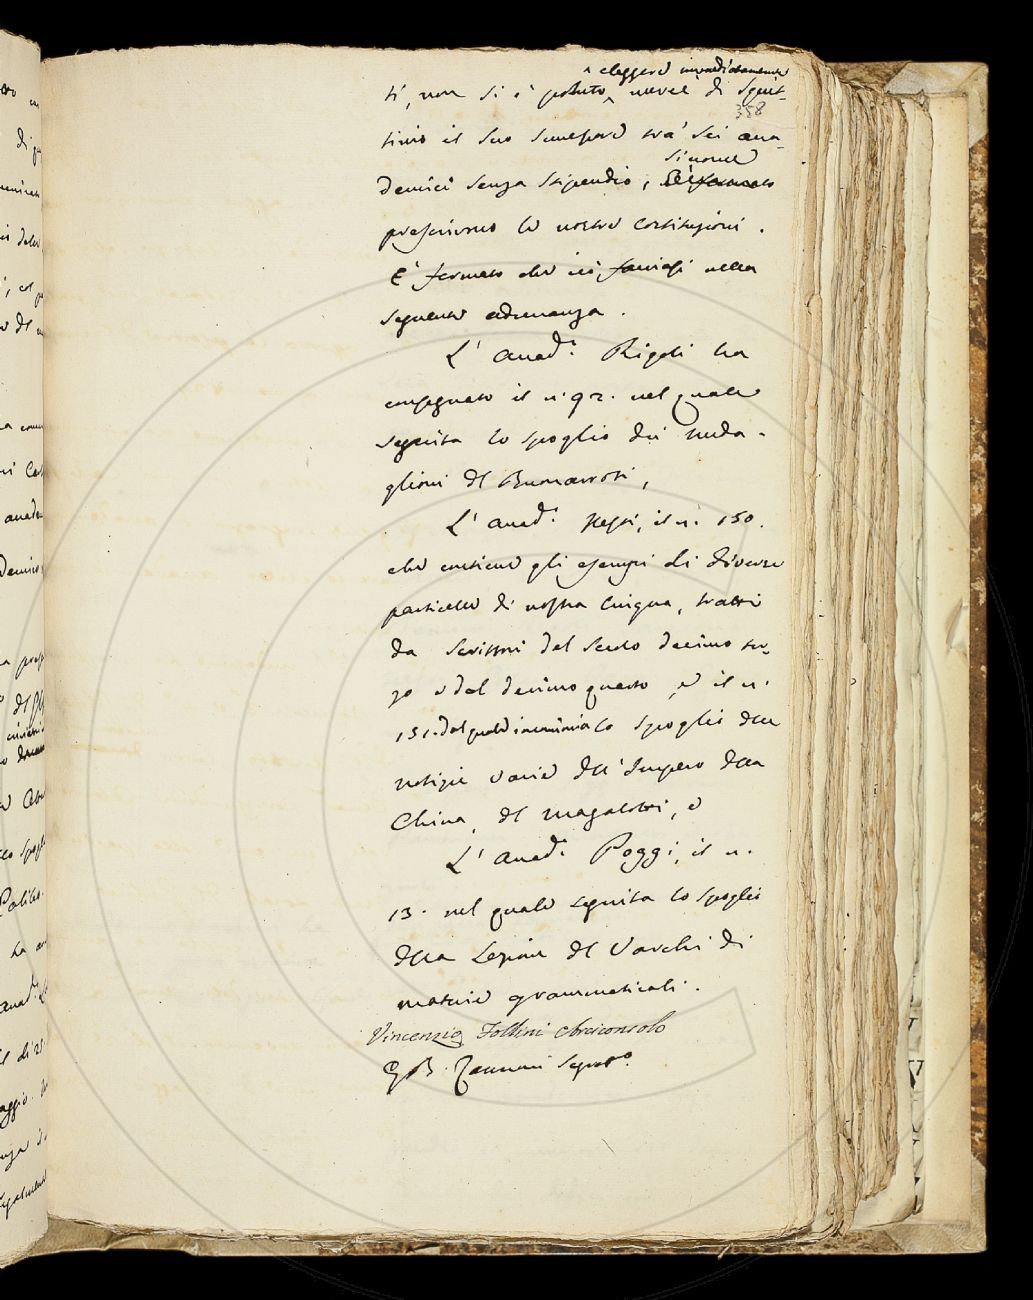 ^ eleggere immediatamente
ti, non si è potuto ^ nuovi di Squit-
358
tinio il suo successore tra' sei acca-
sì come
demici senza stipendio,
prescrivono le nostre Costituzioni.
È fermato che ciò facciasi nella
seguente adunanza.
L' Accad.º Rigoli ha
consegnato il n. 92. nel quale
seguita lo spoglio dei Meda-
glioni del Buonarroti,
L' Accad.º , il n. 150.
che contiene gli esempi di diverse
particelle di nostra lingua, tratti
da Scrittori del Secolo decimo ter-
zo e del decimo quarto, e il n.
151. dal quale incomincia lo spoglio delle
notizie varie dell' Impero della
China, del Magalotti, e
L' Accad.º Poggi, il n.
13. nel quale seguita lo spoglio
della Lezione del Varchi di
materie grammaticali.
Vincenzio Follini Arciconsolo
G. B. Zannoni Segret.º